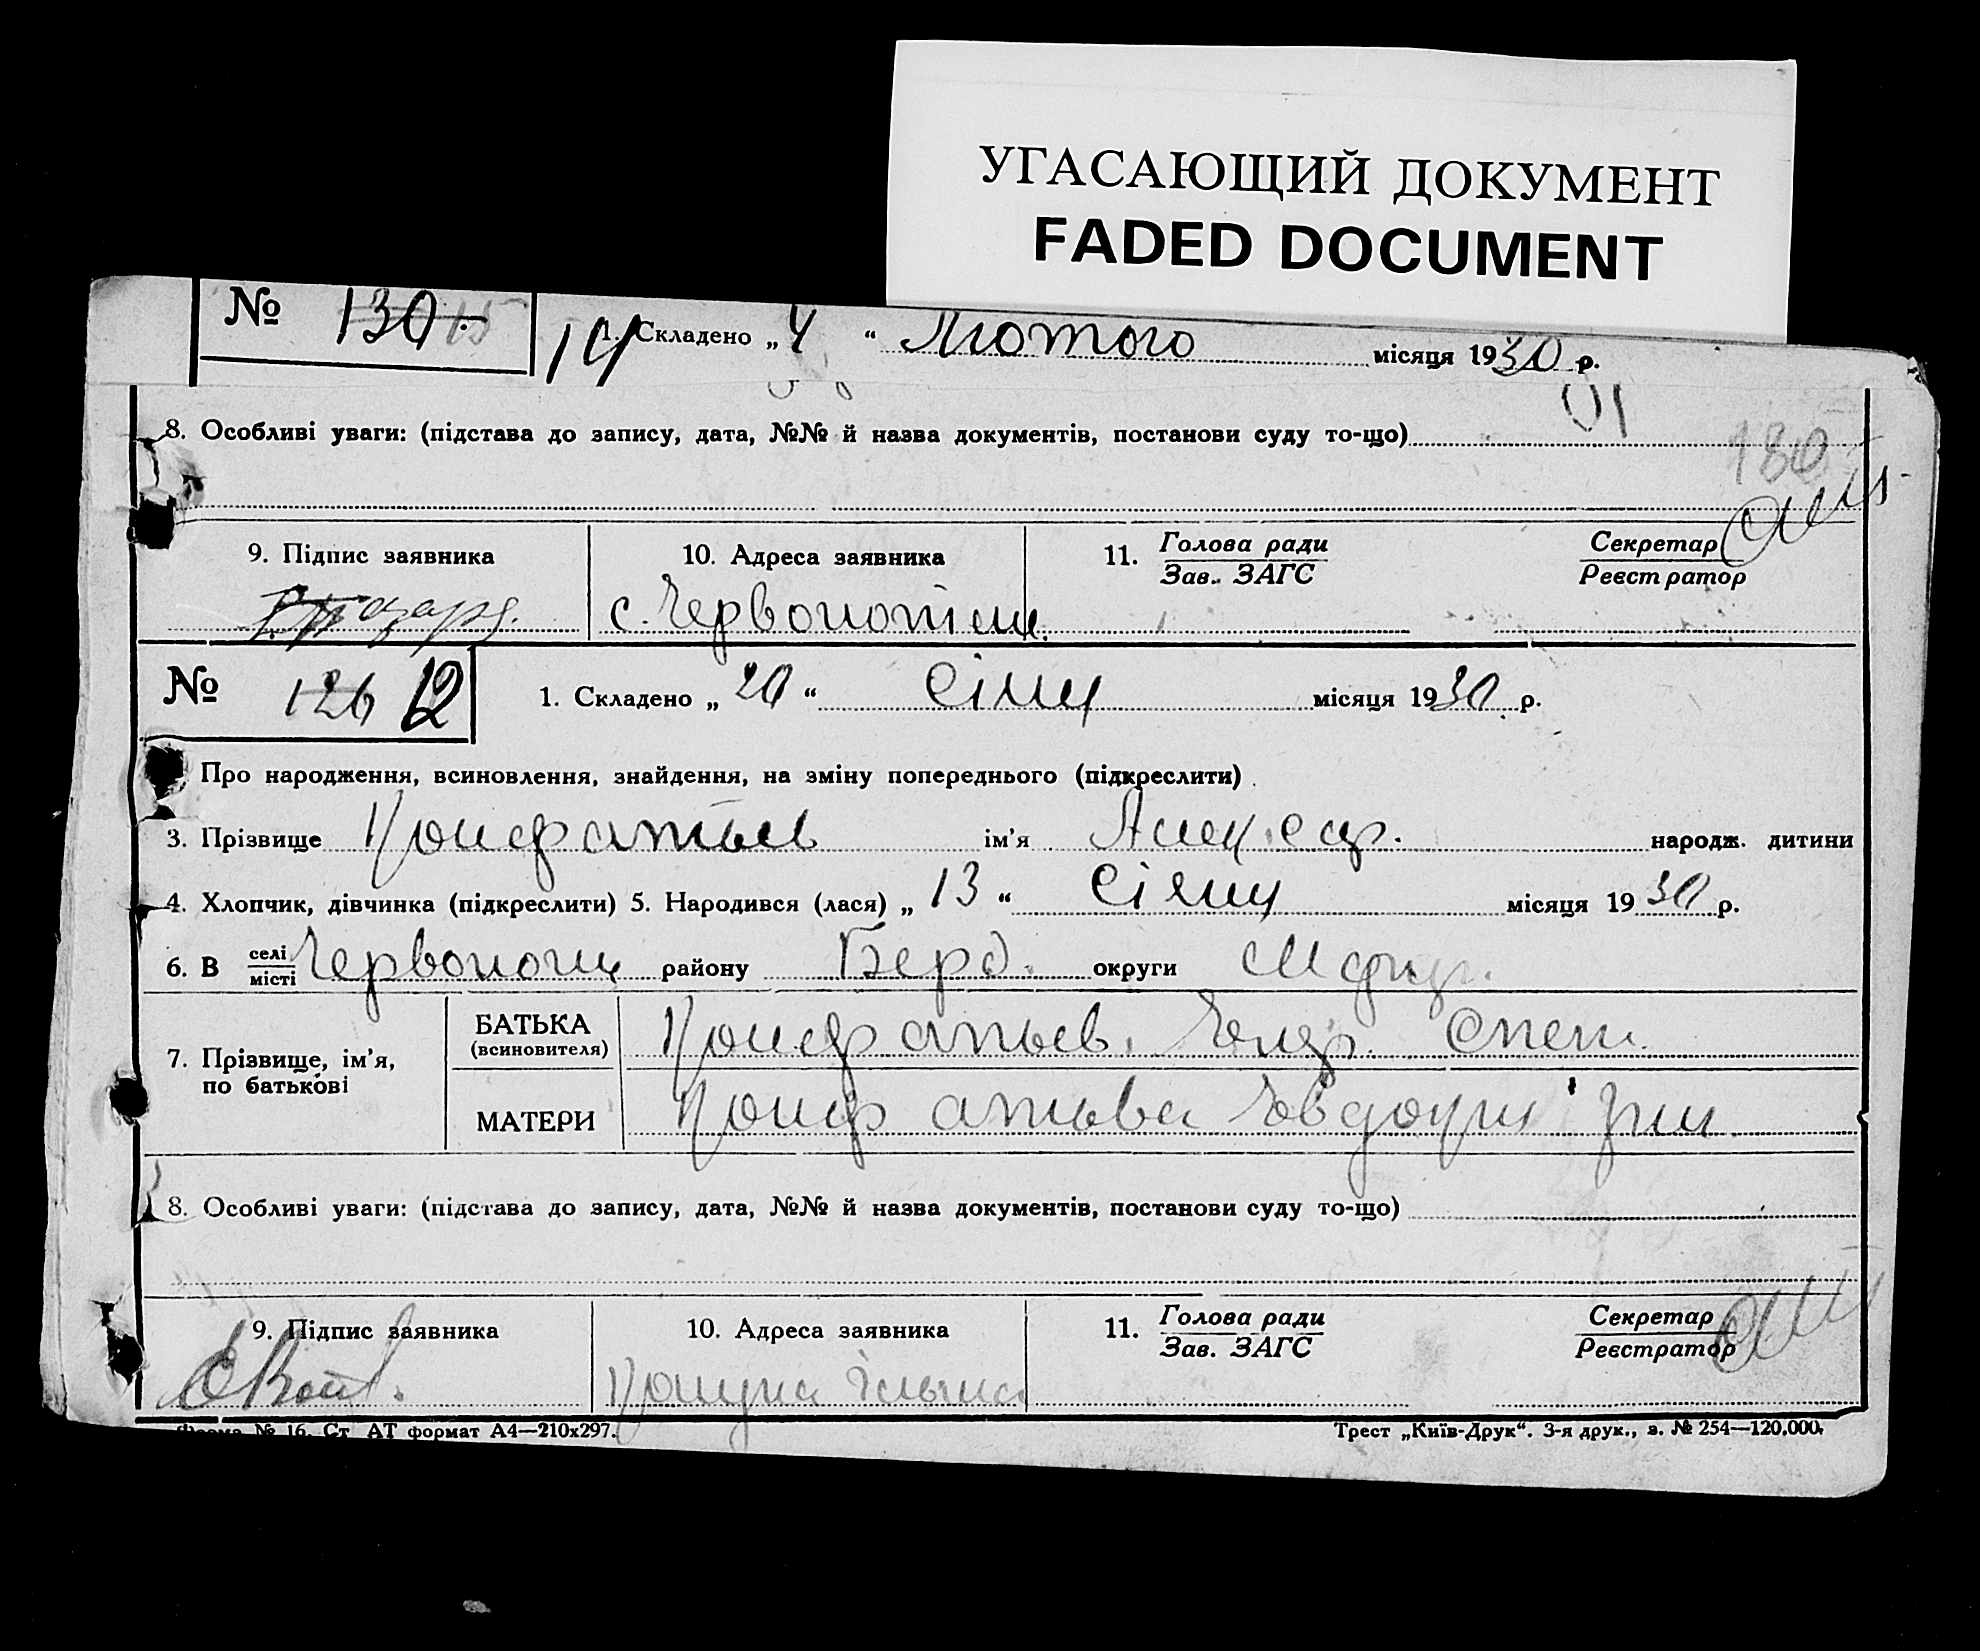 УГАСАЮЩИЙ ДОКУМЕНТ
FADED DOCUMENT
№ 130. 15
14
1. Складено „ 4 “ Лютого місяця 1930 р.
8. Особливі уваги: (підстава до запису, дата, №№ й назва документів, постанови суду то-що)
180
9. Підпис заявника
10. Адреса заявника
11. Голова ради
Зав. ЗАГС
Секретар
Реєстратор
с. Червонопілля
№ 126 12
1. Складено „ 20 “ Січня місяця 1930 р.
Про народження, всиновлення, знайдення, на зміну попереднього (підкреслити)
3. Прізвище Кондратьев ім’я Александр. народж. дитини
4. Хлопчик, дівчинка (підкреслити) 5. Народився (лася) „ 13 “ Січня місяця 1930 р.
6. В селі
місті
Червоноп району Берд. округи
7. Прізвище, ім’я,
по батькові
БАТЬКА
(всиновителя)
Кондратьев Степ.
МАТЕРИ
Кондратьева Евдокия
8. Особливі уваги: (підстава до запису, дата, №№ й назва документів, постанови суду то-що)
9. Підпис заявника
10. Адреса заявника
11. Голова ради
Зав. ЗАГС
Секретар
Реєстратор
Форма № 16. Ст АТ формат А4—210x297.
Трест „Київ-Друк“. 3-я друк., з. № 254—120,000.